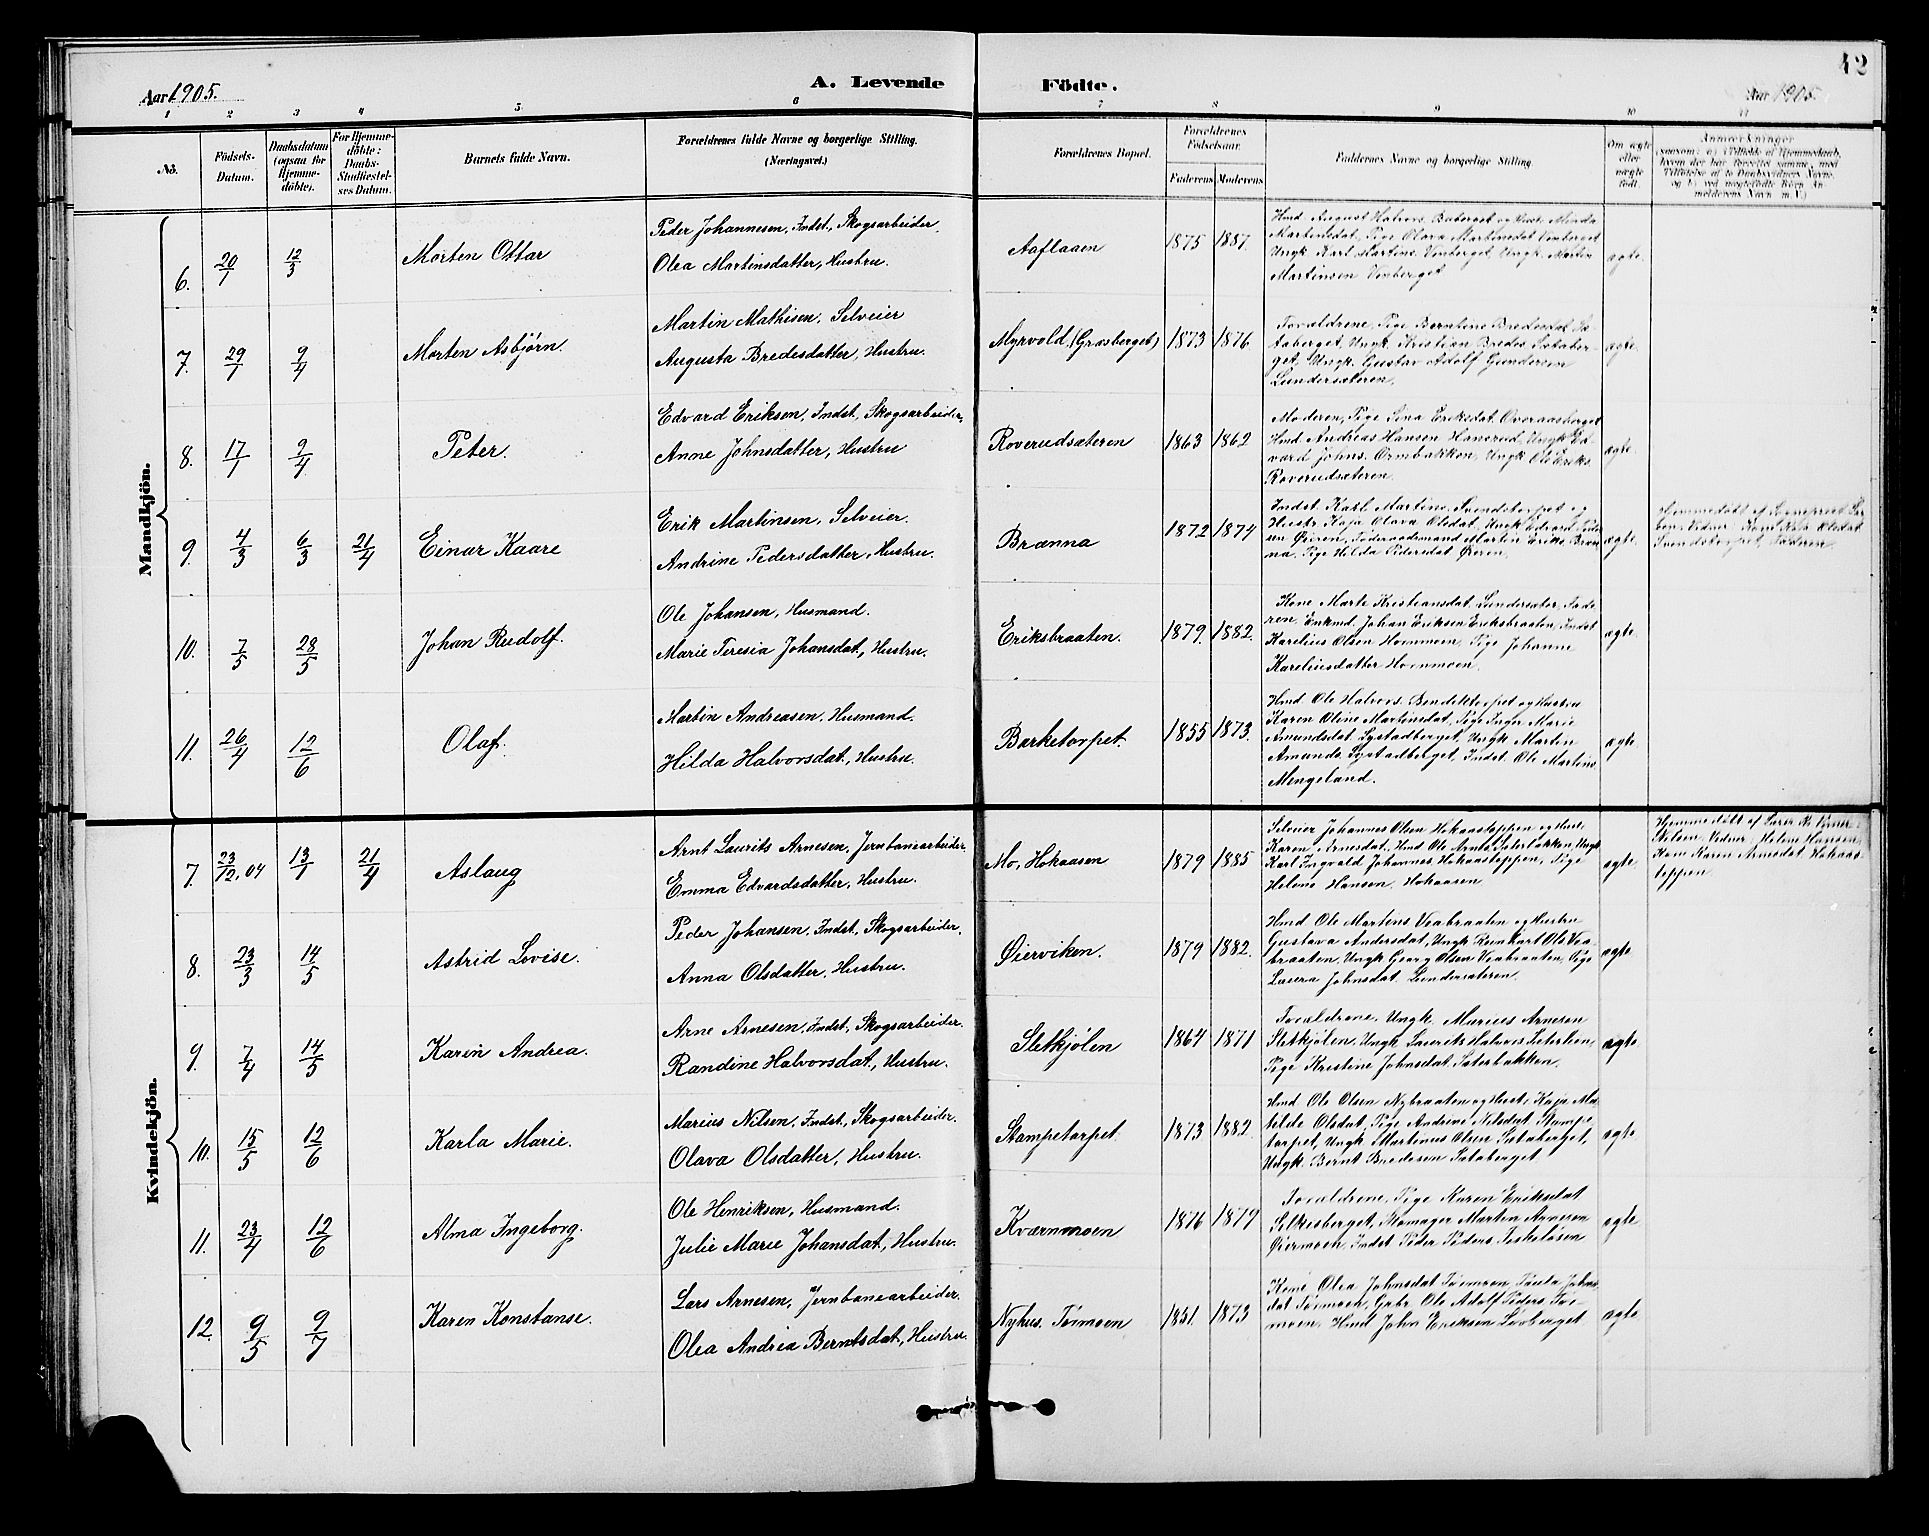 Aar 1905.
A. Levende
Födte.
Aar 1905.
42
1 2 3 4 5 6 7 8 9 10 11
No.
Födsels-
Datum.
Daabsdatum
(ogsaa for
Hjemme-
döbte).
For Hjemme-
döbte:
Daabs-
Stadfæstel-
ses Datum.
Barnets fulde Navn.
Forældrenes fulde Navne og borgerlige Stilling.
(Næringsvei.)
Forældrenes Bopæl.
Forældrenes
Födselsaar.
Faderens Moderens
Faddernes Navne og borgerlige Stilling.
Om ægte
eller
uægte
født.
Anmærkninger
Mandkjön.
6. 20/1 12/3 Morten Ottar
Peder Johannesen, Indst., Skogsarbeider.
Olea Martinsdatter, Hustru.
Aaflaaen 1875 1887.
Hmd. August Halvors. Baberget og Hustr. Minda
Martinsdat., Pige Olava Martinsdat. Vinberget
Ungk. Karl Martins. Vinberget, Ungk. Martin
Martinsen Vinberget
ægte.
7. 29/1 9/4 Morten Asbjörn.
Martin Mathisen, Selveier
Augusta Bredesdatter, Hustru.
Myrvold, (Grasberget) 1873 1876
Forældrene, Pige Berntine Bredesdat. Sæ-
taberget, Ungk. Kristian Bredes. Sætaber-
get, Ungk. Gustav Adolf Gundersen
Lundersæteren.
ægte.
8. 17/1 9/4 Peter.
Edvard Eriksen, Indst., Skogsarbeider,
Anne Johnsdatter, Hustru
Roverudsæteren 1863 1862
Moderen, Pige Sina Eriksdat. Overaasberget
Hmd. Andreas Hansen Hansrud, Ungk. Ed-
vard Johns. Ormbakken, Ungk. Ole Eriks.
Roverudsæteren.
ægte.
9. 4/3 6/3 21/4 Einar Kaare
Erik Martinsen, Selveier.
Andrine Pedersdatter, Hustru.
Brænna 1872 1874
Indst. Karl Martins. Svendstorpet og
Hustr. Kaja Olava Olsdat., Ungk. Edvard Peder-
sen Øieren, Indevaadsmand Martin Eriks. Bræn-
na, Pige Hilda Pedersdat. Øieren.
ægte.
Svendstorpet, Faderen.
10. 7/5 28/5 Johan Rudolf.
Ole Johansen, Husmand.
Marie Teresia Johansdat., Hustru.
Eriksbraaten. 1879. 1882.
Kone Marte Kristiansdat. Lundersæter, Fade-
ren, Enkmd. Johan Eriksen Eriksbraaten, Indst.
Karelius Olsen Hornmoen, Pige Johanne
Kareliusdatter Hornmoen.
ægte.
11. 26/4 12/6 Olaf.
Martin Andreasen, Husmand.
Hilda Halvorsdat., Hustru.
Barketorpet. 1855 1873.
Hmd. Ole Halvors. Bendiktorpet og Hustru
Karen Oline Martinsdat., Pige Inger Marie
Amundsdat. Systadberget, Ungk. Martin
Amunds. Systadberget, Indst. Ole Martins.
Mengeland.
ægte.
Kvindekjön.
7. 23/12, 04 13/1 21/4 Aslaug
Arnt Laurits Arnesen, Jernbanearbeider.
Emma Edvardsdatter, Hustru.
Mo, Hokaasen 1879 1885
Selveier Johannes Olsen Hokaasteppen og Hust.
Karen Arnesdat., Hmd. Ole Arnes. Sæterbakken, Ungk.
Karl Ingvald Johannes. Hokaasteppen, Pige
Helene Hansen, Hokaasen
ægte.
Vidner: Helene Hansen,
Kone Karen Arnesdat. Hokaas-
teppen.
8. 23/3 14/5 Astrid Lovise.
Peder Johansen, Indst., Skogsarbeider.
Anna Olsdatter, Hustru.
Øierviken. 1879 1882.
Hmd. Ole Martens. Vaabraaten og Hustru
Gustava Andersdat., Ungk. Reinhart Ols. Vaa-
braaten, Ungk. Georg Olsen Vaabraaten, Pige
Laura Johnsdat. Lundersæteren.
ægte
9. 7/4 14/5 Karin Andrea.
Arne Arnesen, Indst., Skogsarbeider.
Randine Halvorsdat., Hustru.
Sletkjølen 1864 1871
Forældrene, Ungk. Marius Arnesen
Sletkjølen, Ungk. Laurits Halvors. Sæterbon,
Pige Kristine Johnsdat. Sæterbakken.
ægte
10. 15/5 12/6 Karla Marie.
Marius Nilsen, Indst., Skogsarbeider.
Olava Olsdatter, Hustru.
Stompetorpet. 1873 1882.
Hmd. Ole Olsen Nybraaten og Hust. Kaja Ma-
tilde Olsdat., Pige Andrine Nilsdat. Stompe-
torpet, Ungk. Martinus Olsen Sætaberget,
Ungk. Bernt Bredesen Sætaberget
ægte
11. 23/4 12/6 Alma Ingeborg.
Ole Henriksen, Husmand.
Julie Marie Johansdat., Hustru.
Kværnmoen 1876 1879
Forældrene, Pige Karen Eriksdat
Silkesberget, Skomager Martin Arnesen
Øiermoen, Indst. Peder Peders.
ægte
12. 9/5 9/7 Karen Konstanse.
Lars Arnesen, Jernbanearbeider.
Olea Andrea Berntsdat., Hustru
Nyhus, Tørmoen 1851. 1873
Kone Olea Johnsdat Tørmoen, Paula Johns-
dat Tørmoen, Gabr. Ole Adolf Peders. Tør-
moen, Hmd. John Eriksen Løvberget
ægte